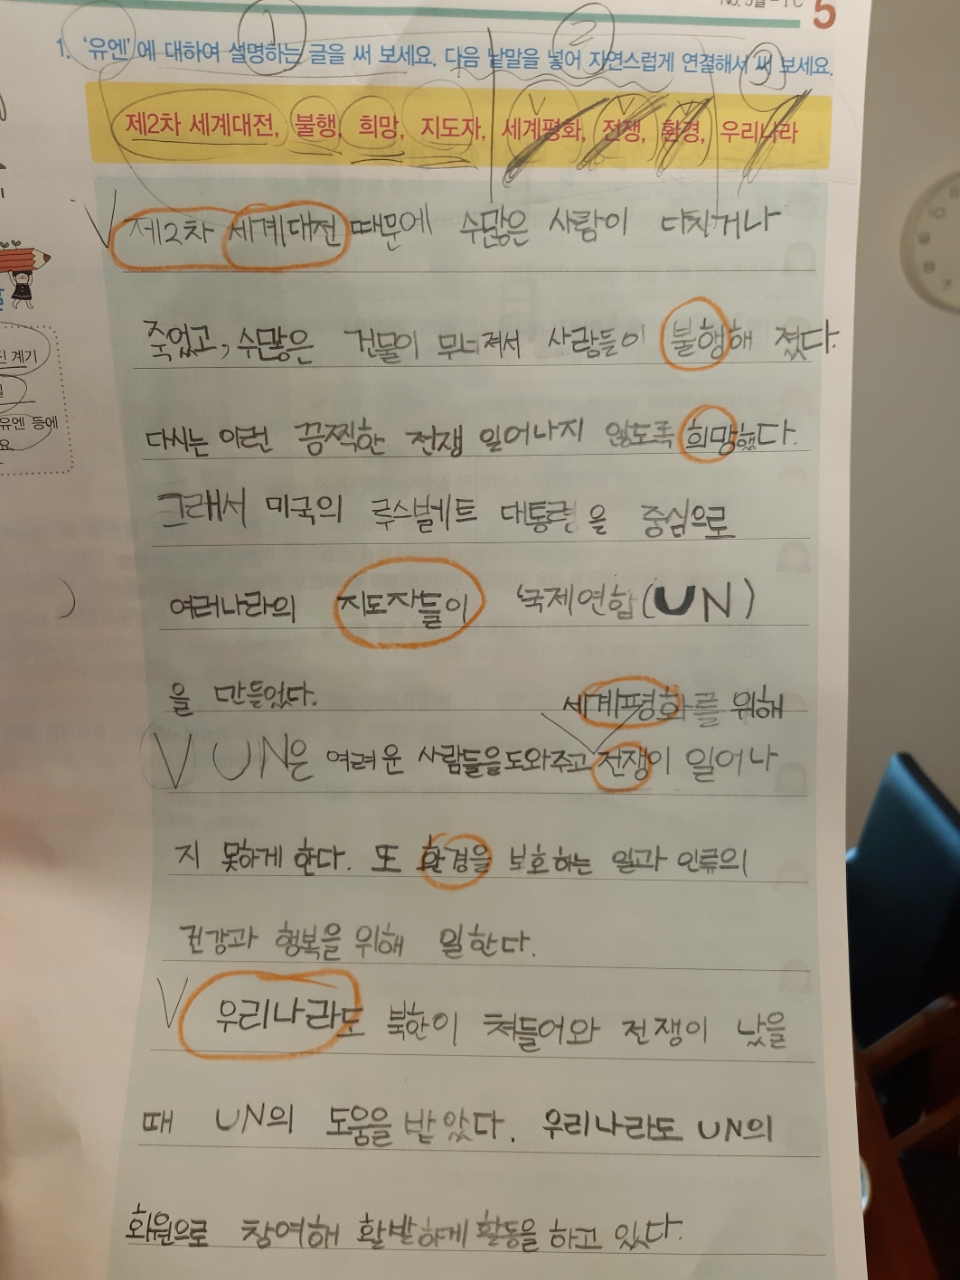 5
1. '유엔'에 대하여 설명하는 글을 써 보세요. 다음 낱말을 넣어 자연스럽게 연결해서 써 보세요.
1
2
3
제2차 세계대전, 불행, 희망, 지도자, 세계평화, 전쟁, 환경, 우리나라
제2차 세계대전 때문에 수많은 사람이 다치거나
죽었고, 수많은 건물이 무너져서 사람들이 불행해 졌다.
다시는 이런 끔찍한 전쟁 일어나지 않도록 희망했다.
그래서 미국의 루스벨트 대통령을 중심으로
여러나라의 지도자들이 국제연합(UN)
을 만들었다.
세계평화를 위해
UN은 여려운 사람들을 도와주고 전쟁이 일어나
지 못하게 한다. 또 환경을 보호하는 일과 인류의
건강과 행복을 위해 일한다.
우리나라도 북한이 쳐들어와 전쟁이 났을
때 UN의 도움을 받았다. 우리나라도 UN의
회원으로 참여해 활발하게 활동을 하고 있다.
계기
유엔 등에
요
10
9
8
7